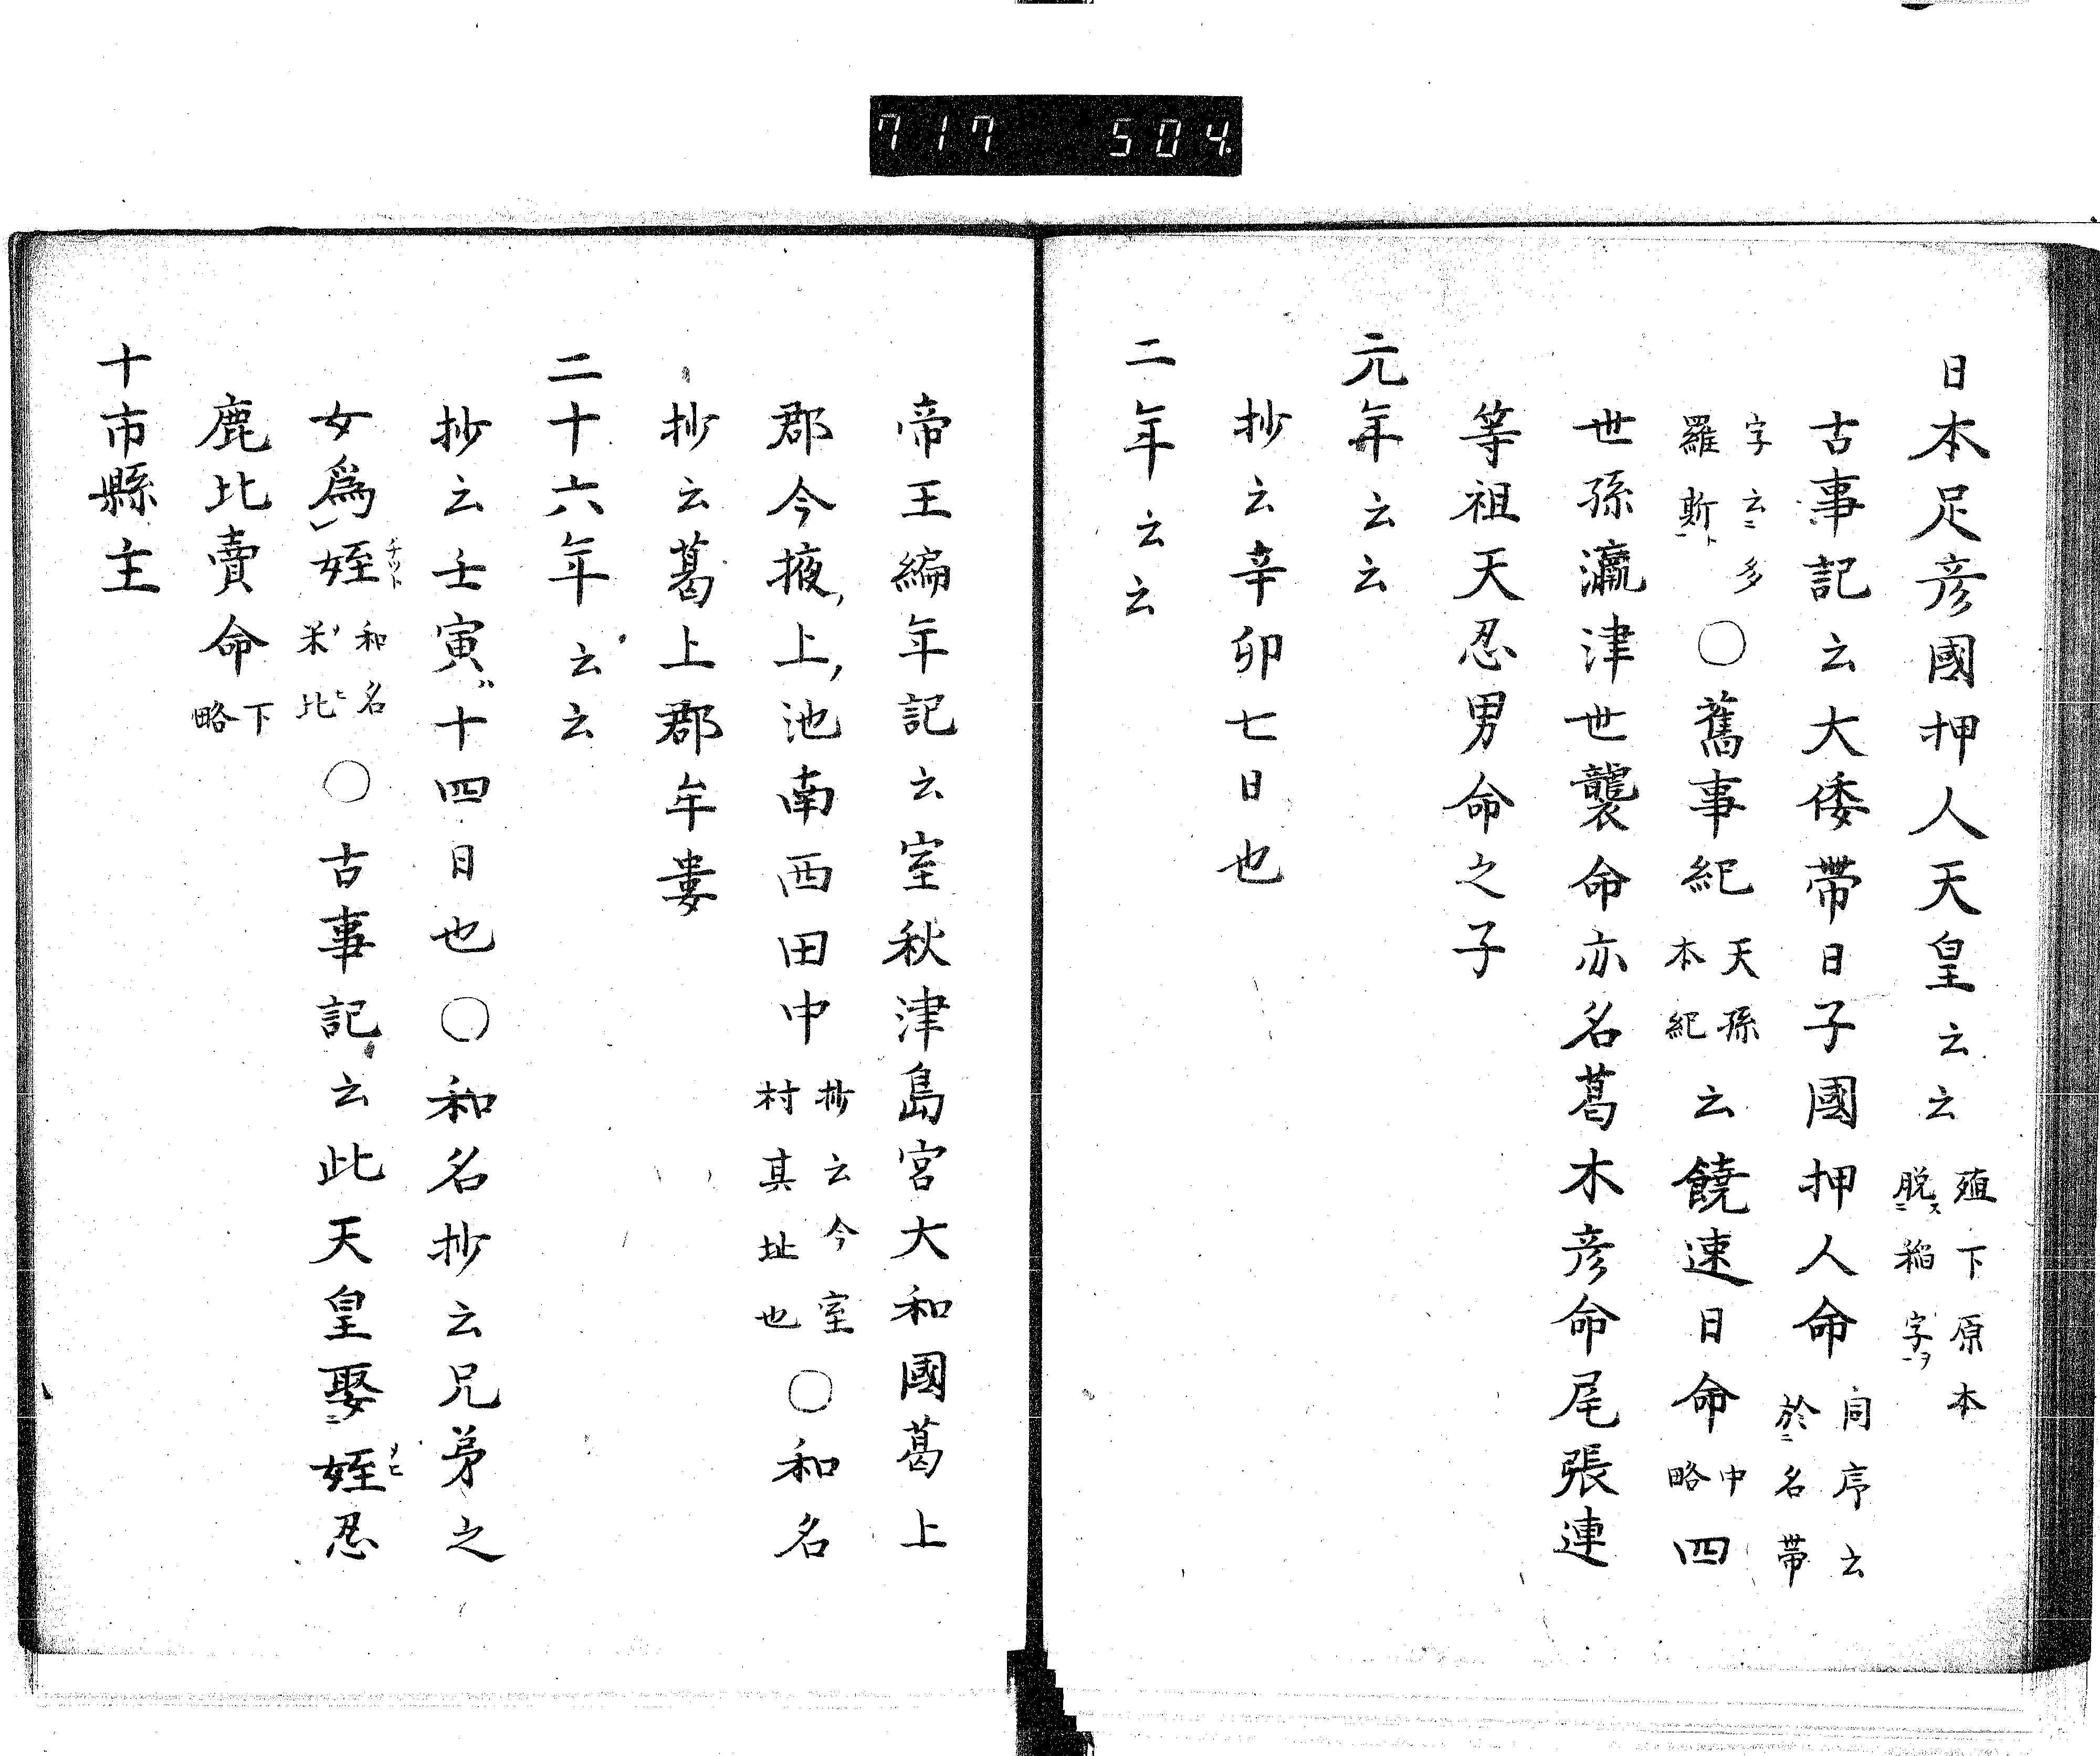 717 504
日本足彦國押人天皇云云 殖下原本脱ス二稲字ヲ一
古事記云大倭帶日子國押人命 同序云於二名帶
字云二多羅斯ト一○舊事紀 天孫本紀 云饒速日命 中略 四
世孫瀛津世襲命亦名葛木彦命尾張連
等祖天忍男命之子
元年云云
抄云辛卯七日也
二年云云
帝王編年記云室秋津島宮大和國葛上
郡今掖上池南西田中 抄云今室村其址也 ○和名
抄云葛上郡牟婁
二十六年云云
抄云壬寅ハ十四日也○和名抄云兄弟之
女爲レ姪 和名米比 ○古事記云此天皇娶二姪忍
鹿比賣命 下略
十市縣主